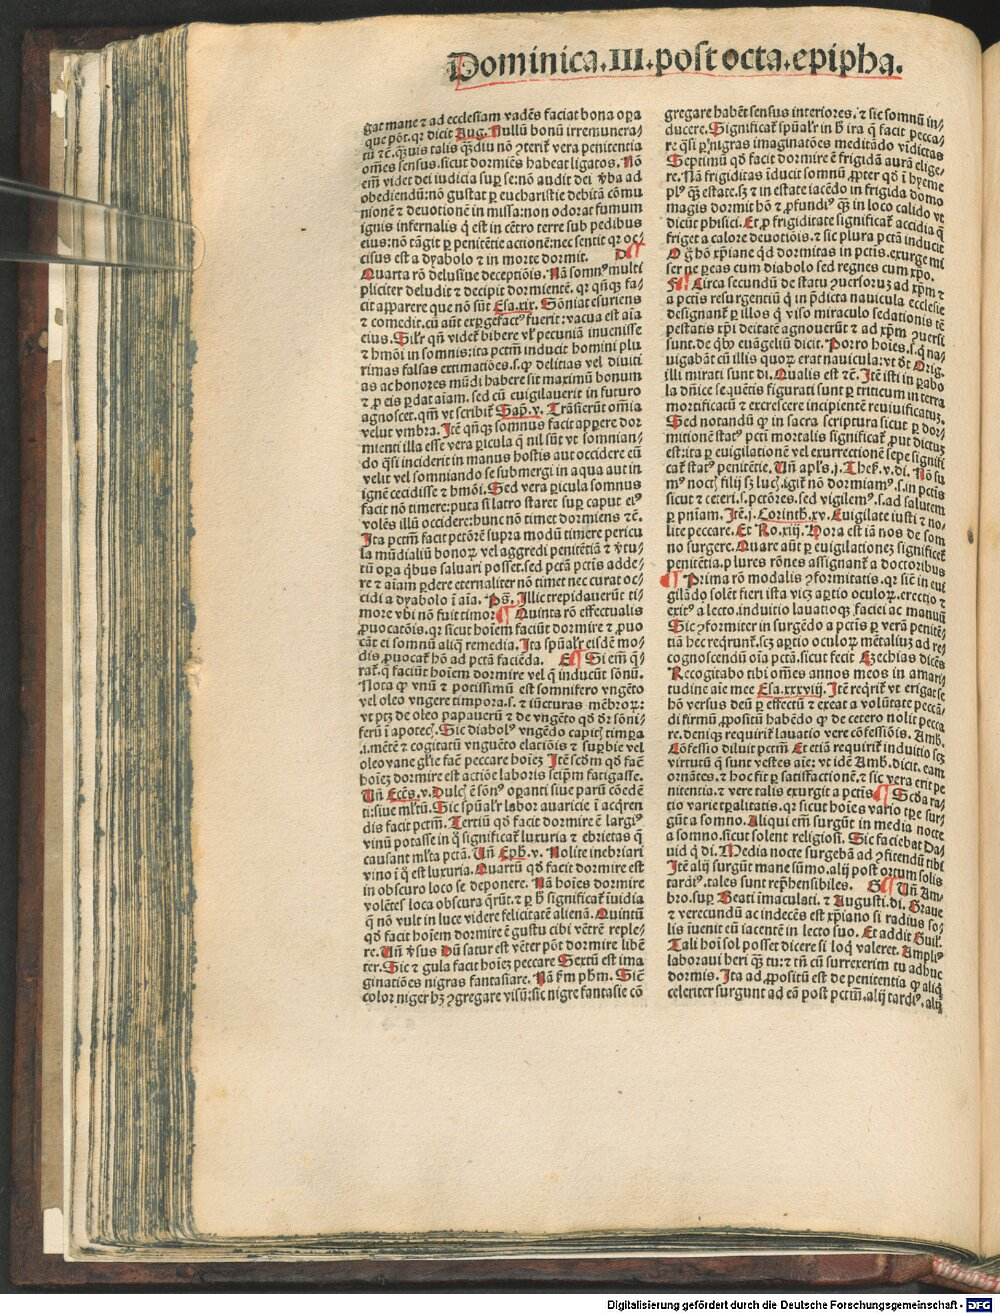 Dominica.III.post octa.epipha.
gat mane ⁊ ad ecclesiam vadẽs faciat bona oꝑa
que põt.qꝛ dicit Aug. Nullũ bonũ irremunera⸗
tũ ⁊c̃.q̃uis talis q̃diu nõ ꝯterit᷑ vera penitentia
om̃es sensus.sicut dormiẽs habeat ligatos. Nõ
em̃ videt dei iudicia suꝑ se:nõ audit dei v̾ba ad
obediendũ:nõ gustat ꝑ eucharistie debitã cõmu
nionẽ ⁊ deuotionẽ in missa:non odorat fumum
ignis infernalis q̇ est in cẽtro terre sub pedibus
eius:nõ tãgit ꝑ penitẽtie actionẽ:nec sentit qꝛ oc⸗
cisus est a dyabolo ⁊ in morte dormit. D
Quarta rõ delusiue deceptiõis. Nã somn⁹ multi
pliciter deludit ⁊ decipit dormientẽ. qꝛ qñqꝫ fa⸗
cit apparere que nõ sũt Esa.xix. Sõniat esuriens
⁊ comedit.cũ aũt exꝑgefact⁹ fuerit:vacua est aĩa
eius. Silr qñ videt᷑ bibere vl̾ pecuniã inuenisse
⁊ hmõi in somnis:ita pctm̃ inducit homini plu
rimas falsas extimatiões.s.ꝙ delitias vel diuiti
as ac honores mũdi habere sit maximũ bonum
⁊ ꝓ eis ꝑdat aĩam. sed cũ euigilauerit in futuro
agnoscet.qm̃ vt scribit᷑ Sap̃.v. Trãsierũt om̃ia
velut vmbra. Itẽ qñqꝫ somnus facit appere dor
mienti illa esse vera ꝑicula q̃ nil sũt vt somnian⸗
do q̃si inciderit in manus hostis aut occidere eũ
velit vel somniando se submergi in aqua aut in
ignẽ cecidisse ⁊ hmõi. Sed vera ꝑicula somnus
facit nõ timere:puta si latro staret suꝑ caput ei⁹
volẽs illũ occidere:hunc nõ timet dormiens ⁊c̃.
Ita pctm̃ facit pctõrẽ supra modũ timere pericu
la mũdialiũ bonoꝝ vel aggredi penitẽtiã ⁊ v̾tu⸗
tũ oꝑa q̇bus saluari posset.sed pctã pctis adde⸗
re ⁊ aĩam ꝑdere eternaliter nõ timet nec curat oc⸗
cidi a dyabolo ĩ aĩa. Ps̃. Illic trepidauerũt ti⸗
more vbi nõ fuit timor. Quinta rõ effectualis
ꝓuocatõis.qꝛ sicut hoĩem faciũt dormire ⁊ ꝓuo
cãt ei somnũ aliq̃ remedia. Ita spũalr̃ eisdẽ mo⸗
dis ꝓuocat᷑ hõ ad pctã faciẽda. E Si em̃ q̃⸗
rat᷑.q̃ faciũt hoĩem dormire vel q̃ inducũt sõnũ.
Nota ꝙ vnũ ⁊ potissimũ est somnifero vngẽto
vel oleo vngere timpora.s. ⁊ iũcturas mẽbroꝝ:
vt ptꝫ de oleo papauerũ ⁊ de vngẽto qd̾ dr̃ sõni⸗
ferũ ĩ apotech̾. Sic diabol⁹ vngẽdo capit̾ timꝑa
.i.mẽtẽ ⁊ cogitatũ vnguẽto elatiõis ⁊ suꝑbie vel
oleo vane gl̃ie faẽ peccare hoĩeꝫ Itẽ scd̾m qd̾ faẽ
hoĩeꝫ dormire est actiõe laboris seip̃m fatigasse.
Vñ Ecc̃s.v. Dulc̾ ẽ sõn⁹ oꝑanti siue parũ coẽde
ti:siue ml̾tũ. Sic spũalr̃ labor auaricie ĩ acq̃ren
dis facit pctm̃. Tertiũ qd̾ facit dormire ẽ larg⁹
vinũ potasse in q̊ significat᷑ luxuria ⁊ ebrietas q̃
causant ml̾ta pctã. Vñ Eph̾.v. Nolite inebriari
vino ĩ q̊ est luxuria. Quartũ qd̾ facit dormire est
in obscuro loco se deponere. Nã hoĩes dormire
volẽtes loca obscura q̃rũt.⁊ ꝑ h̾ significat᷑ ĩuidia
q̃ nõ vult in luce videre felicitatẽ alienã. Quintũ
qd̾ facit hoĩem dormire ẽ gustu cibi vẽtrẽ reple⸗
re. Vñ v̾sus Dũ satur est vẽter põt dormire libẽ
ter. Sic ⁊ gula facit hoĩeꝫ peccare Sextũ est ima
ginatiões nigras fantasiare. Nã s̾m ph̾m. Sic̃
color niger hꝫ ꝯgregare visũ:sic nigre fantasie cõ
gregare habẽt sensus interiores.⁊ sic somnũ in⸗
ducere. Significat᷑ spũal̾r in h̾ ira q̃ facit pecca⸗
re q̃si ꝑ nigras imaginatões meditãdo vĩdictas
Septimũ qd̾ facit dormire ẽ frigidã aurã elige⸗
re. Nã frigiditas ĩducit somnũ ꝓpter qd̾ ĩ hyeme
pl⁹ q̃ꝫ estate.sꝫ ⁊ in estate iacẽdo in frigida domo
magis dormit hõ ⁊ ꝓfundi⁹ q̃ꝫ in loco calido vt
dicũt phisici. Et ꝓ frigiditate significat᷑ accidia q̃
friget a calore deuotiõis.⁊ sic plura pctã inducit
O g̊ hõ xp̃iane qd̾ dormitas in pctis.exurge mi
ser ne ꝑeas cum diabolo sed regnes cum xp̃o.
F Circa secundũ de statu ꝯuersoruꝫ ad xp̃m ⁊
a pctis resurgentiũ q̇ in p̃dicta nauicula ecclesie
designant᷑ ꝑ illos q̇ viso miraculo sedationis tẽ
pestatis xp̃i deitatẽ agnouerũt ⁊ ad xp̃m ꝯuersi
sunt.de q̇bꝰ euãgeliũ dicit. Porro hoĩes.s.q̇ na⸗
uigabãt cũ illis quoꝝ erat nauicula:vt dt̃ Orig.
illi mirati sunt di. Qualis est ⁊c̃. Itẽ isti in ꝑabo
la dñice seq̃ntis figurati sunt ꝑ triticum in terra
mortificatũ ⁊ excrescere incipientẽ reuiuificatuꝫ.
Sed notandũ ꝙ in sacra scriptura sicut ꝑ dor⸗
mitionẽ stat⁹ pcti mortalis significat᷑ ꝓut dictuꝫ
est:ita ꝑ euigilationẽ vel exurrectionẽ sepe signifi
cat᷑ stat⁹ penitẽtie. Vñ apl̃s.j. Thes̾.v.di. Nõ su
m⁹ noct̾ filij sꝫ luc̾.igit᷑ nõ dormiam⁹.s.in pctis
sicut ⁊ ceteri.s.pctõres.sed vigilem⁹.s.ad salutem
ꝑ pñiam. Itẽ.j. Corinth.xv. Euigilate iusti ⁊ no⸗
lite peccare. Et Ro.xiij. Hora est iã nos de som
no surgere. Quare aũt ꝑ euigilationeꝫ significet᷑
penitẽtia.plures rõnes assignant᷑ a doctoribus
Prima rõ modalis ꝯformitatis.qꝛ siẽ in eui
gilãdo solẽt fieri ista vicꝫ aꝑtio oculoꝝ.erectio ⁊
exit⁹ a lecto.induitio lauatioqꝫ faciei ac manuũ
Sic ꝯformiter in surgẽdo a pctis ꝑ verã penitẽ⸗
tiã hec req̃runt᷑.scꝫ aꝑtio oculoꝝ mẽtaliuꝫ ad re⸗
cognoscendũ oĩa pctã.sicut fecit Ezechias dicẽs
Recogitabo tibi om̃es annos meos in amari⸗
tudine aĩe mee Esa.xxxviij. Itẽ req̃rit᷑ vt erigat se
hõ versus deũ ꝑ effectũ ⁊ exeat a volũtate peccã⸗
di firmũ ꝓpositũ habẽdo ꝙ de cetero nolit pecca
re.deniqꝫ requirit᷑ lauatio vere cõfessiõis. Amb.
Cõfessio diluit pctm̃ Et etiã requirit᷑ induitio scꝫ
virtutũ q̃ sunt vestes aĩe: vt idẽ Amb. dicit.eam
ornãtes.⁊ hoc fit ꝑ satisfactionẽ.⁊ sic vera erit pe
nitentia.⁊ vere talis exurgit a pctis. Scd̾a ra⸗
tio varie tꝑalitatis.qꝛ sicut hoĩes vario tꝑe sur⸗
gũt a somno. Aliqui em̃ surgũt in media nocte
a somno.sicut solent religiosi. Sic faciebat Da⸗
uid q̇ di. Media nocte surgebã ad ꝯfitendũ tibi
Itẽ alij surgũt mane sũmo.alij post ortum solis
tardi⁹.tales sunt rep̃hensibiles. G Vñ Am⸗
bro.suꝑ Beati immaculati.⁊ Augusti.di. Graue
⁊ verecundũ ac indecẽs est xp̃iano si radius so⸗
lis ĩuenit eũ iacentẽ in lecto suo. Et addit Guil̾.
Tali hoĩ sol posset dicere si loq̇ valeret. Ampli⁹
laboraui heri q̃ꝫ tu:⁊ tñ cũ surrexerim tu adhuc
dormis. Ita ad ꝓpositũ est de penitentia ꝙ aliq̇
celeriter surgunt ad eã post pctm̃.alij tardi⁹.alij
Digitalisierung gefördert durch die Deutsche Forschungsgemeinschaft - DFG